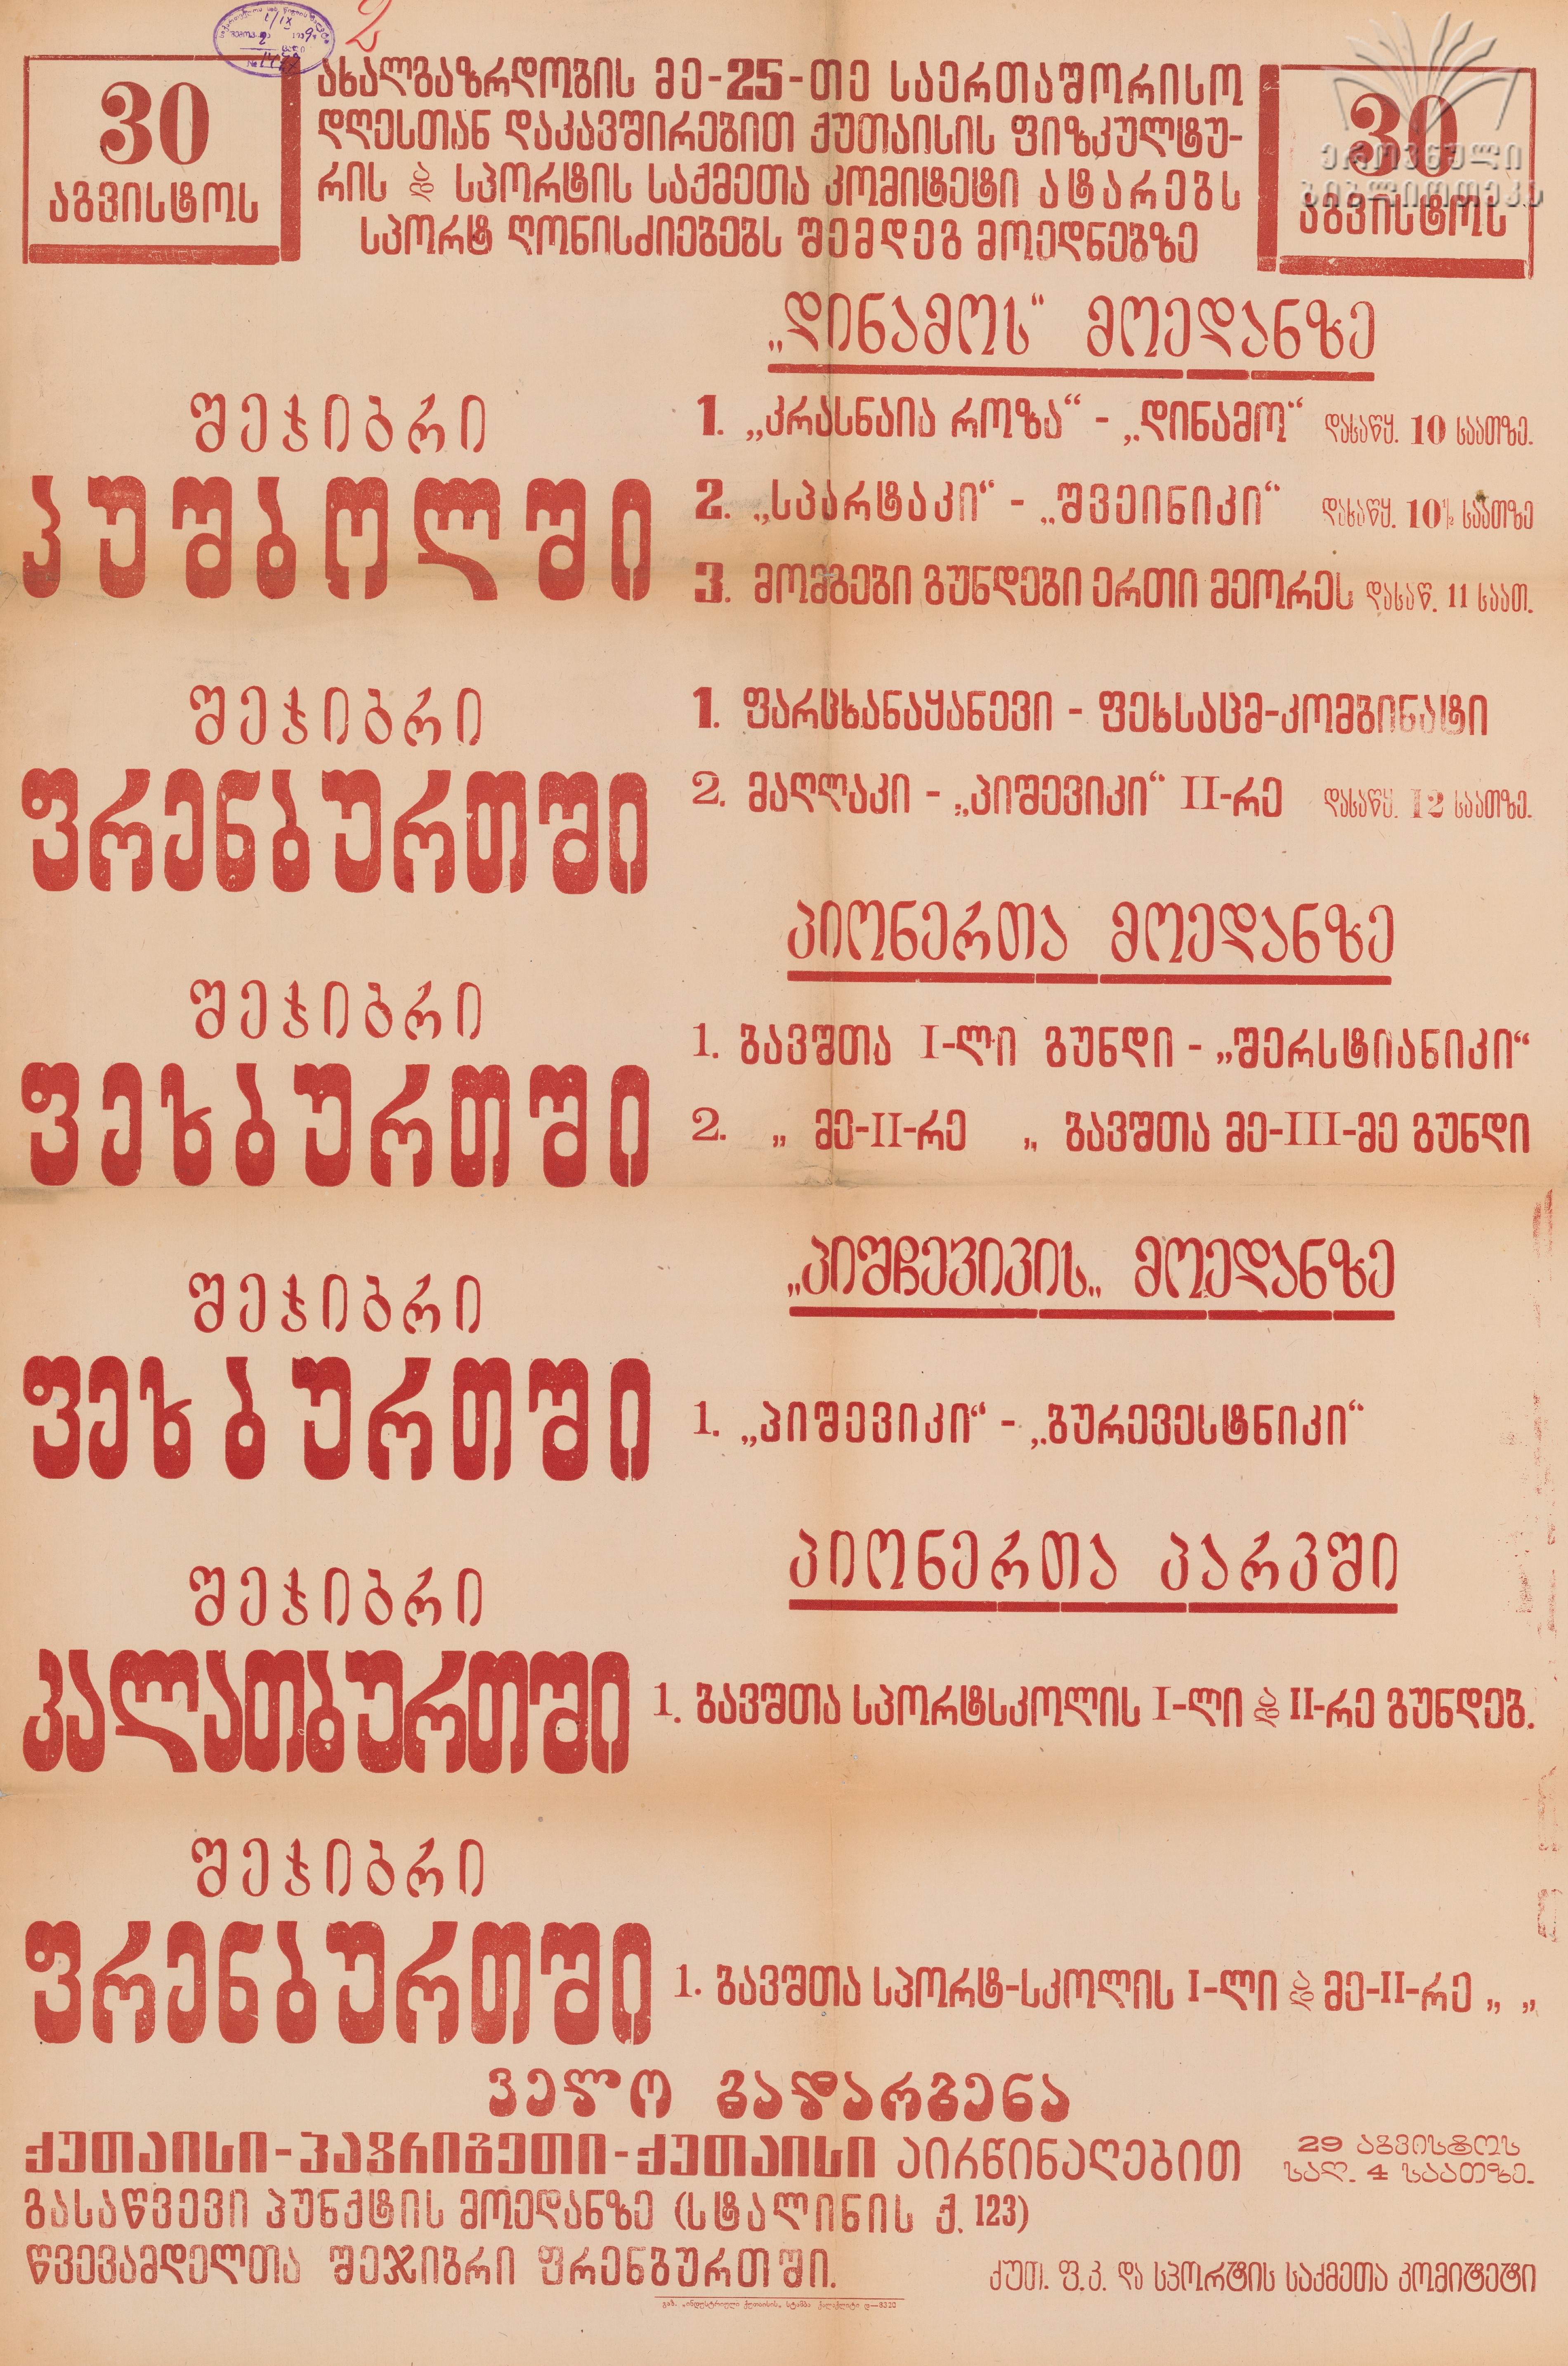 30
აგვისტოს
ახალგაზრდობის მე-25-თე საერთაშორისო
დღესთან დაკავშირებით ქუთაისის ფიზკულტუ-
რის და სპორტის საქმეთა კომიტეტი ატარებს
სპორტ ღონისძიებებს შემდეგ მოედნებზე
30
აგვისტოს
ეროვნული
ბიბლიოთეკა
„დინამოს“ მოედანზე
შეჯიბრი
პუშბოლში
1. „კრასნაია როზა“ - „დინამო“ დასაწყ. 10 საათზე.
2. „სპარტაკი“ - „შვეინიკი“ დასაწყ. 10½ საათზე
3. მომგები გუნდები ერთი მეორეს დასაწ. 11 საათ.
შეჯიბრი
ფრენბურთში
1. ფარცხანაყანევი - ფეხსაცმ-კომბინატი
2. მაღლაკი - „პიშევიკი“ II-რე დასაწყ. 12 საათზე.
პიონერთა მოედანზე
შეჯიბრი
ფეხბურთში
1. ბავშთა I-ლი გუნდი - „შერსტიანიკი“
2. „ მე-II-რე „ ბავშთა მე-III-მე გუნდი
„პიშჩევიკის„ მოედანზე
შეჯიბრი
ფეხბურთში
1. „პიშევიკი“ - „ბურევესტნიკი“
პიონერთა პარკში
შეჯიბრი
კალათბურთში
1. ბავშთა სპორტსკოლის I-ლი და II-რე გუნდებ.
შეჯიბრი
ფრენბურთში
1. ბავშთა სპორტ-სკოლის I-ლი და მე-II-რე „ „
ველო გადარბენა
ქუთაისი-პატრიკეთი-ქუთაისი აირწინაღებით
29 აგვისტოს
საღ. 4 საათზე.
გასაწვევი პუნქტის მოედანზე (სტალინის ქ. 123)
წვევამდელთა შეჯიბრი ფრენბურთში.
ქუთ. ფ.კ. და სპორტის საქმეთა კომიტეტი